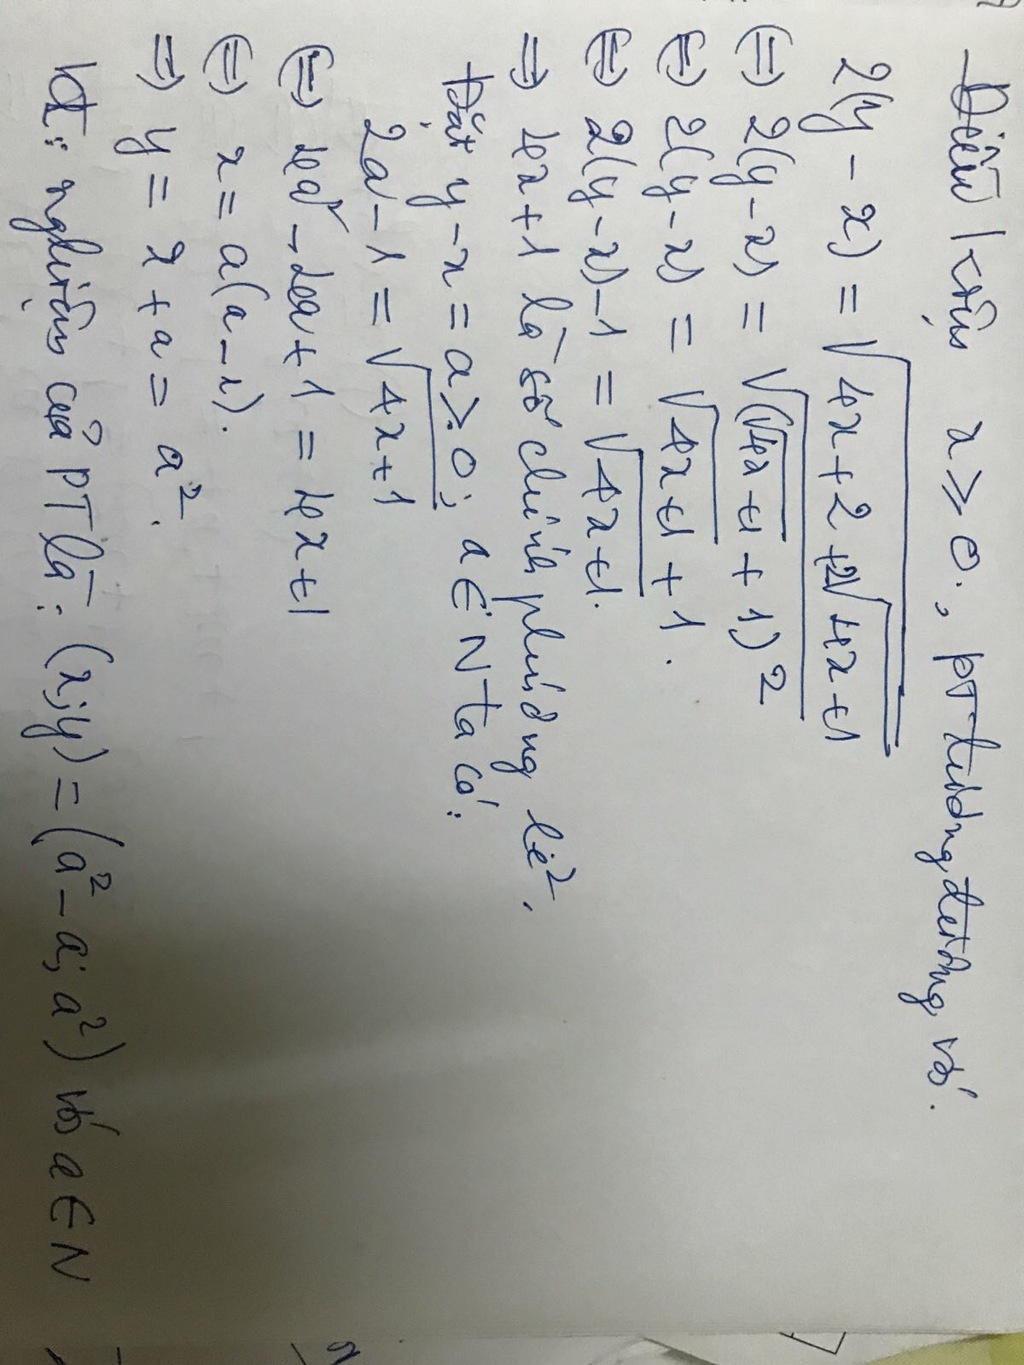 Điều kiện x ≥ 0, PT tương đương với.
2(y - x) = √(4x + 2 + 2√(4x+1))
⇔ 2(y-x) = √((√(4x+1) + 1)²)
⇔ 2(y-x) = √(4x+1) + 1.
⇔ 2(y-x)-1 = √(4x+1).
⇒ 4x+1 là số chính phương lẻ.
Đặt y-x = a ≥ 0; a ∈ N ta có:
2a-1 = √(4x+1)
⇔ 4a² - 4a + 1 = 4x+1
⇔ x = a(a-1).
⇒ y = x + a = a².
KL: nghiệm của PT là: (x;y) = (a²-a; a²) với a ∈ N